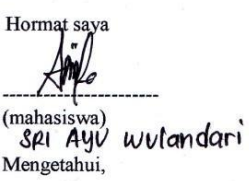 Hormat saya
(mahasiswa)
SRI AYU wulandari
Mengetahui,